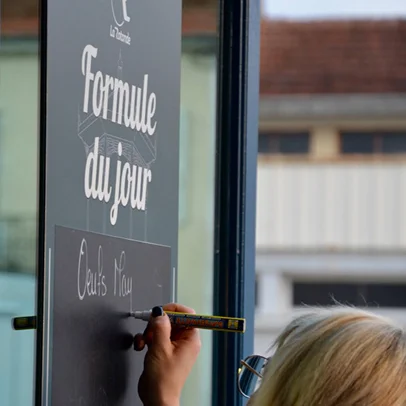 La Rotonde
Formule
du jour
Oeufs May